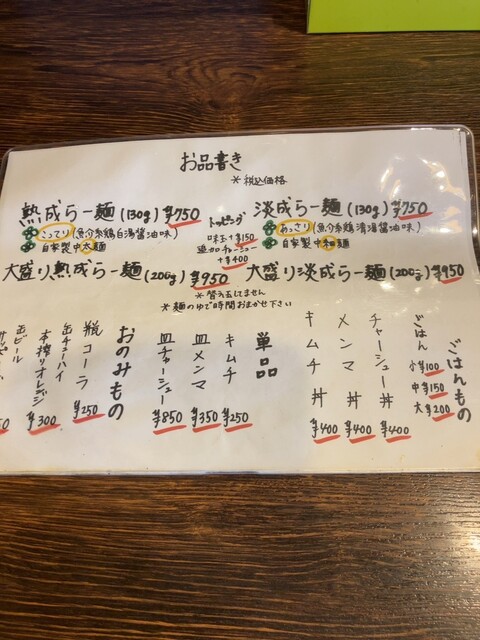 お品書き
*税込価格
熟成らー麺(130g)¥750
こってり(魚介系鶏白湯醤油味)
自家製中太麺
トッピング
味玉+¥150
追加チャーシュー
+¥400
淡成らー麺(130g)¥750
あっさり(魚介系鶏清湯醤油味)
自家製中細麺
大盛り熟成らー麺(200g)¥950
大盛り淡成らー麺(200g)¥950
*替え玉してません
*麺のゆで時間おまかせ下さい
ごはんもの
ごはん 小¥100
中¥150
大¥200
チャーシュー丼 ¥400
メンマ丼 ¥400
キムチ丼 ¥400
単品
キムチ ¥250
皿メンマ ¥350
皿チャーシュー ¥850
おのみもの
瓶コーラ ¥250
缶チューハイ
本搾りオレンジ ¥300
缶ビール